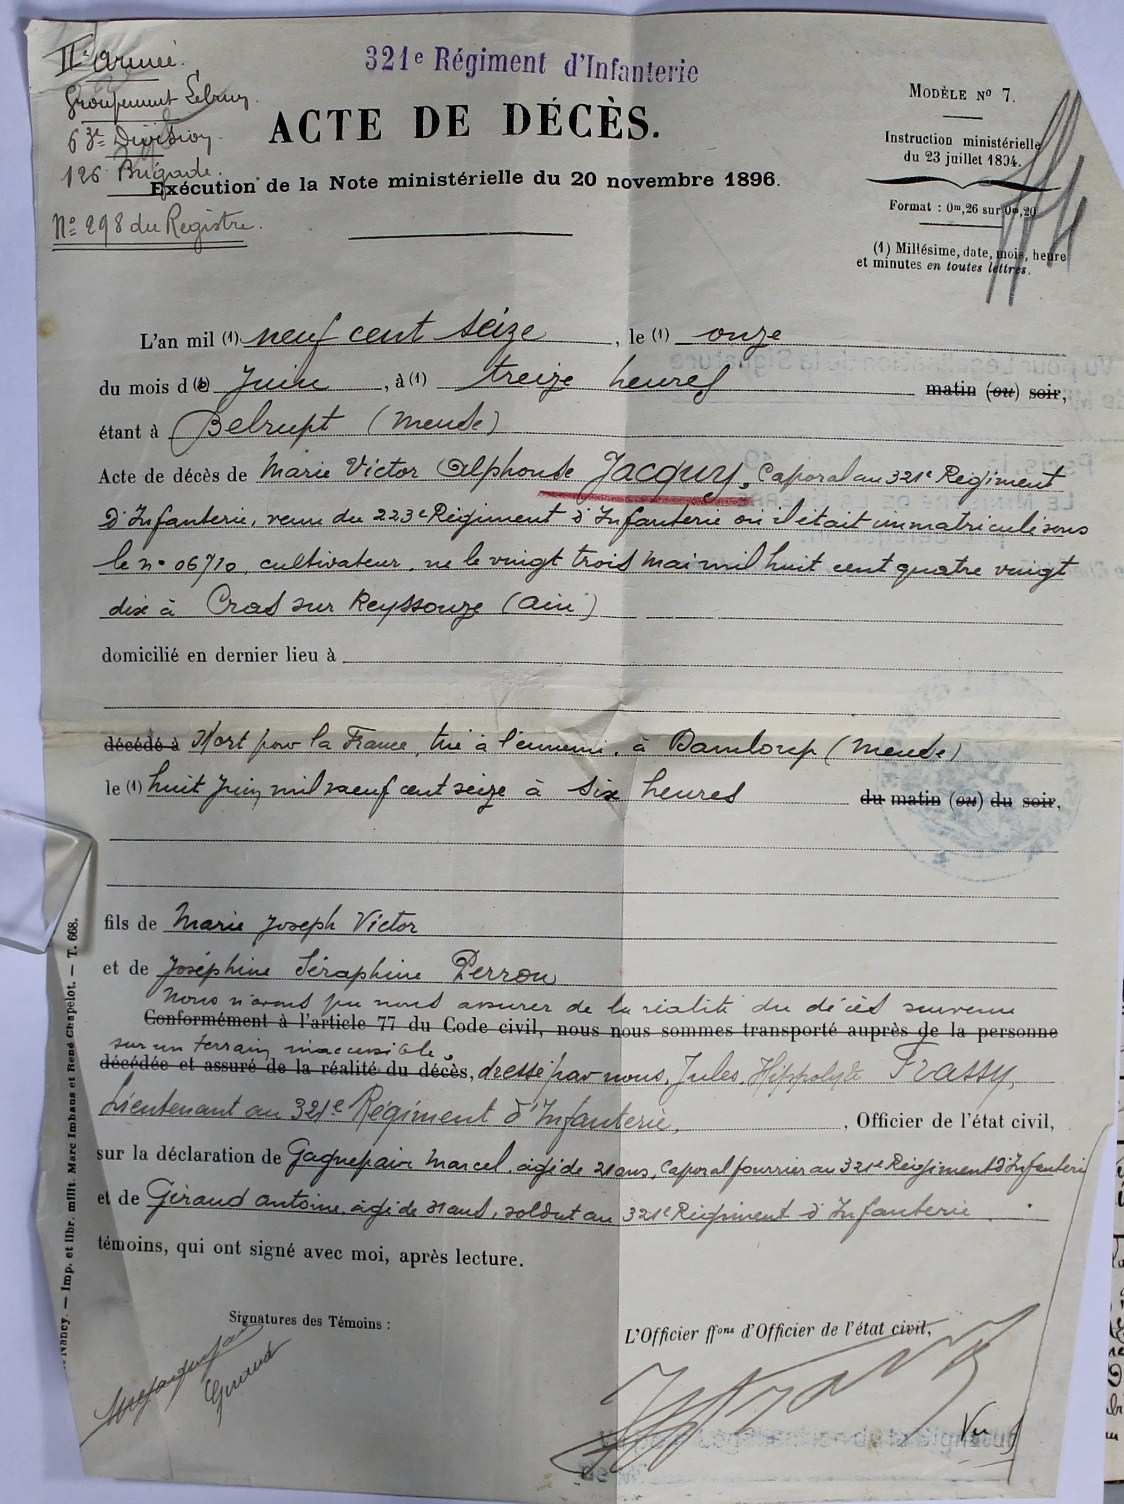 IIe armée.
Groupement Lebrun.
63e Division
126 Brigade.
N° 298 du Registre.
321e Régiment d'Infanterie
ACTE DE DÉCÈS.
Exécution de la Note ministérielle du 20 novembre 1896.
MODÈLE N° 7.
Instruction ministérielle
du 23 juillet 1894.
Format : 0m,26 sur 0m,20
(1) Millésime, date, mois, heure
et minutes en toutes lettres.
L'an mil (1) neuf cent seize, le (1) onze
du mois d (e) Juin, à (1) treize heures matin (ou) soir,
étant à Belrupt (Meuse)
Acte de décès de Marie Victor Alphonse Jacquy, Caporal au 321e Régiment
d'Infanterie, venu du 223e Régiment d'Infanterie où il était immatriculé sous
le n° 06710, cultivateur, né le vingt trois mai mil huit cent quatre vingt
dix à Cras sur Reyssouze (Ain)
domicilié en dernier lieu à
décédé à Mort pour la France, tué à l'ennemi, à Damloup (Meuse)
le (1) huit Juin mil neuf cent seize à six heures du matin (ou) du soir,
fils de Marie Joseph Victor
et de Joséphine Séraphine Perron
Nous n'avons pu nous assurer de la réalité du décès survenu
Conformément à l'article 77 du Code civil, nous nous sommes transporté auprès de la personne
sur un terrain inaccessible
décédée et assuré de la réalité du décès, dressé par nous, Jules Hippolyte Frassy,
Lieutenant au 321e Régiment d'Infanterie, , Officier de l'état civil,
sur la déclaration de Gagnepain Marcel, âgé de 21 ans, Caporal fourrier au 321e Régiment d'Infanterie
et de Giraud Antoine, âgé de 31 ans, soldat au 321e Régiment d'Infanterie
témoins, qui ont signé avec moi, après lecture.
Signatures des Témoins :
L'Officier ffons d'Officier de l'état civil,
Giraud
Vu
Nancy. — Imp. et libr. milit. Marc Imhaus et René Chapelot. — T. 668.